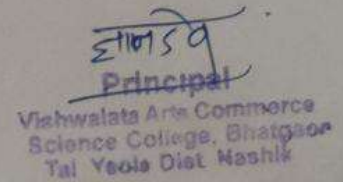 Principal
Vishwalata Arts Commerce
Science College, Bhatgaon
Tal Yeola Dist Nashik